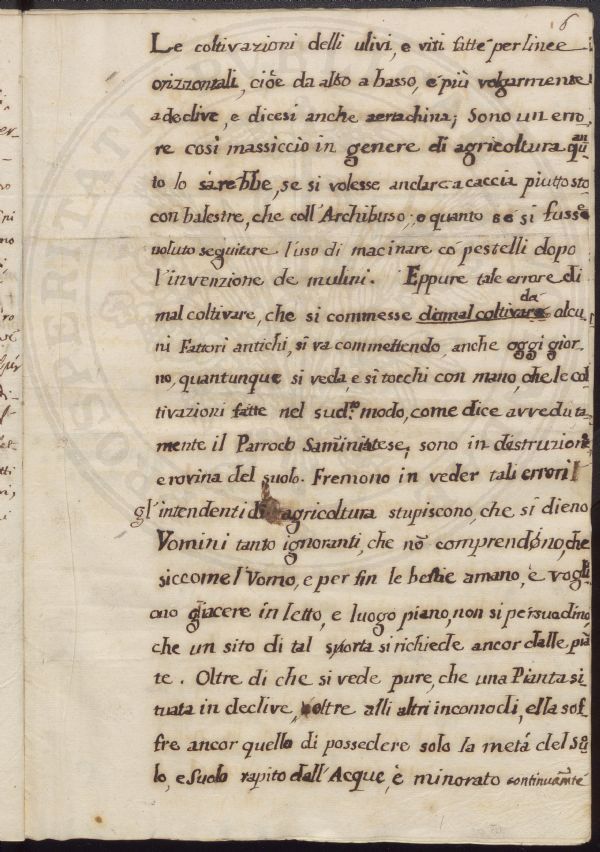 6
Le coltivazioni delli ulivi, e viti fatte per linee
orizzontali, cioè da alto a basso, e più volgarmente
a declive, e dicesi anche a ; Sono un erro,
re così massiccio in genere di agricoltura quan
to lo sarebbe, se si volesse andare a caccia piuttosto
con balestre, che coll'Archibuso; o quanto se si fusse
voluto seguitare l'uso di macinare cò pestelli dopo
l'invenzione de mulini. Eppure tale errore di
mal coltivare, che si commesse di mal coltivare da alcu,
ni Fattori antichi, si va commettendo, anche oggi gior,
no, quantunque si veda, e si tocchi con mano, che le col
tivazioni fatte nel sud.o modo, come dice avveduta,
mente il Parroco Samminiatese, sono in destruzione
e rovina del suolo. Fremono in veder tali errori
gl'intendenti di agricoltura stupiscono, che si dieno
Uomini tanto ignoranti, che nõ comprendono, che
siccome l'Uomo, e per fin le bestie amano, e vogli
ono giacere in letto, e luogo piano, non si persuadino,
che un sito di tal sporta si richiede ancor dalle pian
te. Oltre di che si vede pure, che una Pianta si,
tuata in declive, oltre alli altri incomodi, ella sof
fre ancor quello di possedere solo la metá del suo,
lo, e suolo rapito dall'Acque, è minorato continuam.te